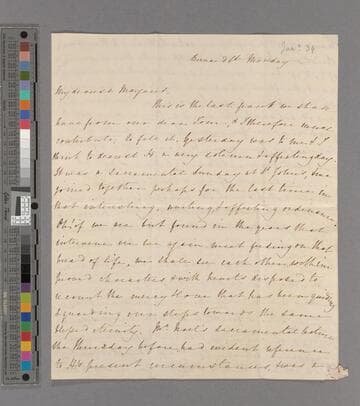 Jany 34
Monday
My dearest Margaret,
This is the last frank we shall
have from our dear Tom, & I therefore must
contribute to fill it. Yesterday was to me & I
think to dearest H a very solemn & affecting day
It was a sacramental Sunday at St John's, & we
joined together perhaps for the last time in
that interesting, uniting & affecting ordinance
Oh! if we are but found in the years that
intervene ere we again meet feeding on that
bread of life, we shall see each other with
characters & with hearts disposed to
recount the mercy & love that has been guiding
& guarding our steps towards the same
eternity. Mr Noel's sacramental lecture
the Thursday before, had evident reference
to H's present circumstances, &